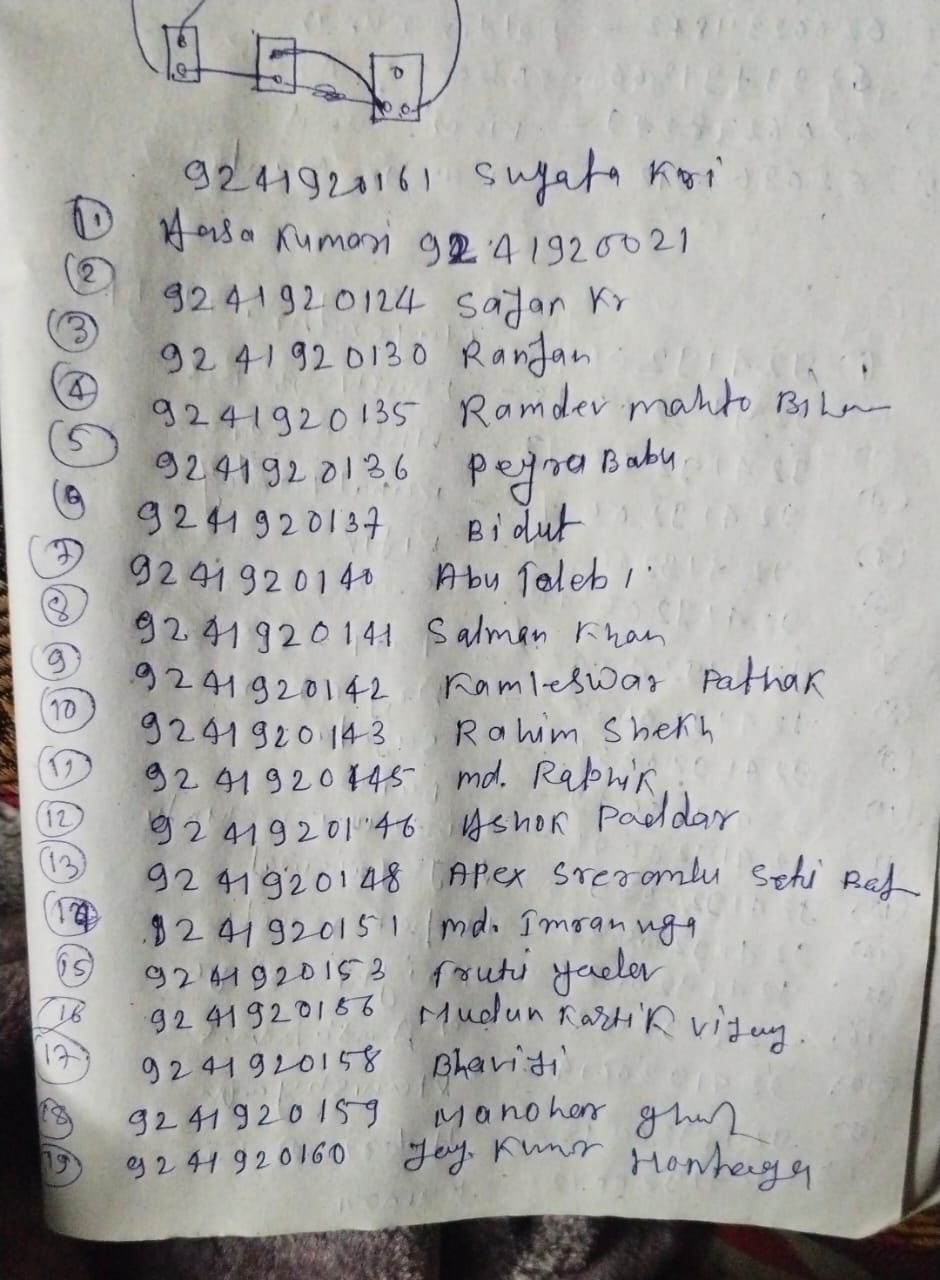 9241920161 Sujata Kri
1. Harsa Kumari 9241920021
2 9241920124 Sajan Kr
3 9241920130 Ranjan
4 9241920135 Ramdev mahto
5 9241920136 Babu
6 9241920137 Bidut
7 9241920140 Abu Taleb
8 9241920141 Salman Khan
9 9241920142 Kamleswar Pathak
10 9241920143 Rahim Shekh
11 9241920145 md. Raphik
12 9241920146 Ashok Paddar
13 9241920148 APex
14 9241920151 md. Imran
15 9241920153
16 Kartik Vijay.
17 9241920158
18 9241920159 Manohar
19 9241920160 Jay